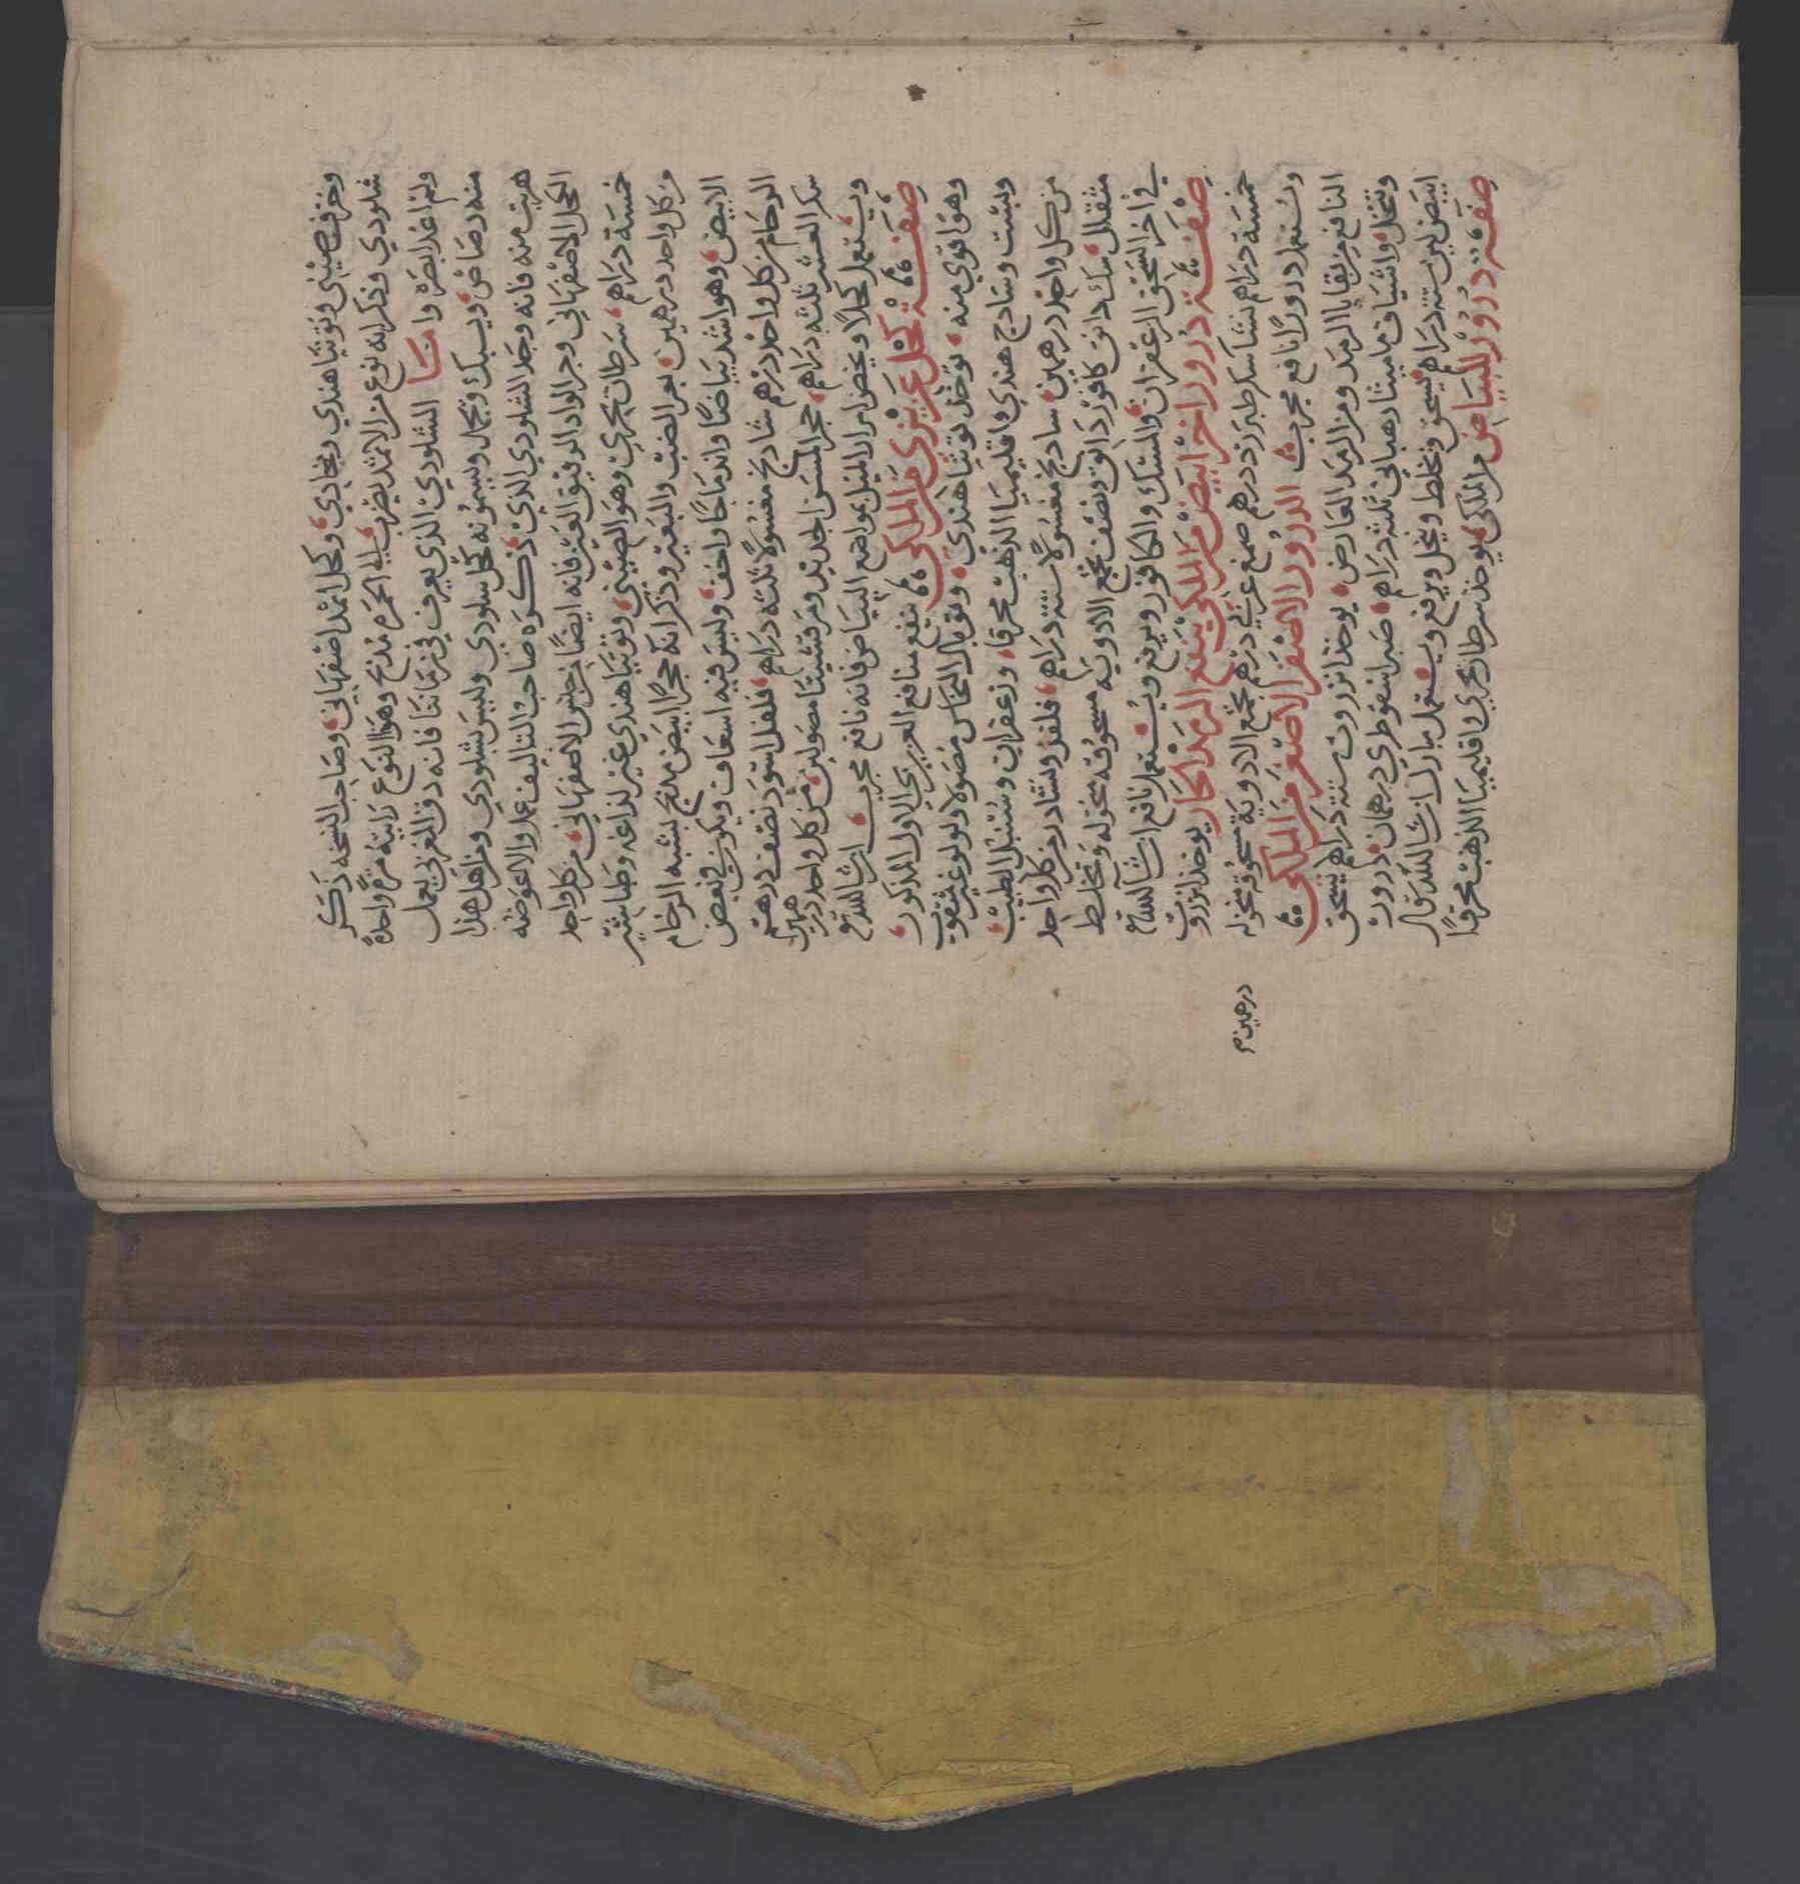 وخزف صيني وتوتيا هندي وبغدادي وكحل اثمد اصفهاني وصاحب النسخه ذكر
شلودي وذكر انه نوع من الاثمد يضرب الى الحمرة مدبج وهو النوع رايته مرة واحدة
ولم اعد ابصره واما الشلودي الذي يعرف في زماننا فانه دق المغربي يعمل
منه رصاص ويسبك ويحمل ويسمونه كحل سلودي وليس بشلودي هذا
منه فانه وجد الشلودي الذي ذكره صاحب التاليف والا عوضه
الكحل الاصفهاني وحجر الواد الرقيق فانه ايضا من جنس الاصفهاني من كل واحد
خمسة دراهم سرطان بحري وهو الصيني وتوتيا هندي غير لذاعه وطباشير
من كل واحد درهمين بعر الضب وذكر انه حجر ابيض مدبج يشبه الرخام
الابيض وهو اشد بياضا واندماجا واخف وليس فيه ويكون في بعض
الرخام من كل واحد درهم شادنج مغسول ثلثه دراهم فلفل اسود نصف درهم
سكر العشر ثلثه دراهم حجر المسن ومرقشيثا مصولين من كل واحد درهمين
ويستعمل كحلا ويخص امرار الميل مواضع البياض فانه نافع مجرب ان شا الله تع
صفة كحل عزيزي من الملكي ينفع منافع العزيزي الاول المذكور
وهو اقوى منه يوخذ توتيا هندي وتوبال النحاس مصول ولولو غير مثقوب
وبست وسادج هندي واقليميا الذهب محرقا وزعفران وسنبل الطيب
من كل واحد درهمين سادنج مغسول ستة دراهم فلفل ونشادر من كل واحد
مثقال سك دانق كافور دانق ونصف تجمع الادويه مسحوقه منخوله وتخلط
في اخر السحق الزعفران والمسك والكافور ويرفع ويستعمل نافع ان شا الله تع
صفة درور اخر ابيض من الملكي ينفع الرمد الحار يوخذ انزروت
خمسة دراهم نشا سكر طبرزد درهم صمغ عربي درهم تجمع الادوية مسحوقة منخوله
درهمين
وتستعمل درورا نافع مجرب الدرور الاصفر الاصغر من الملكي
النافع من بقايا الرمد ومن الرمد العارض يوخذ انزروت ستة دراهم يسحق
وينخل واشياف ماميثا رهباني ثلثة دراهم صبر اسقوطري درهمان درور
ابيض لين ستة دراهم يسحق ويخلط وينخل ويرفع ويستعمل مبارك ان شا الله تعالى
صفة درور للبياض من الملكي يوخذ سرطان بحري واقليميا الذهب محرقا